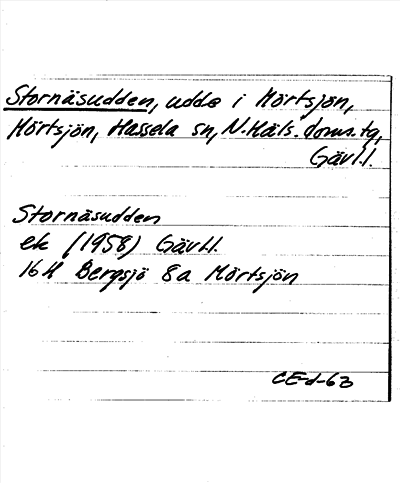 Stornäsudden, udde i Mörtsjön,
Mörtsjön, Hassela sn, N. Häls. doms.tg,
Gävl.l.
Stornäsudden
ek (1958) Gävl.l.
16 H Bergsjö 8a Mörtsjön
CE-d-63